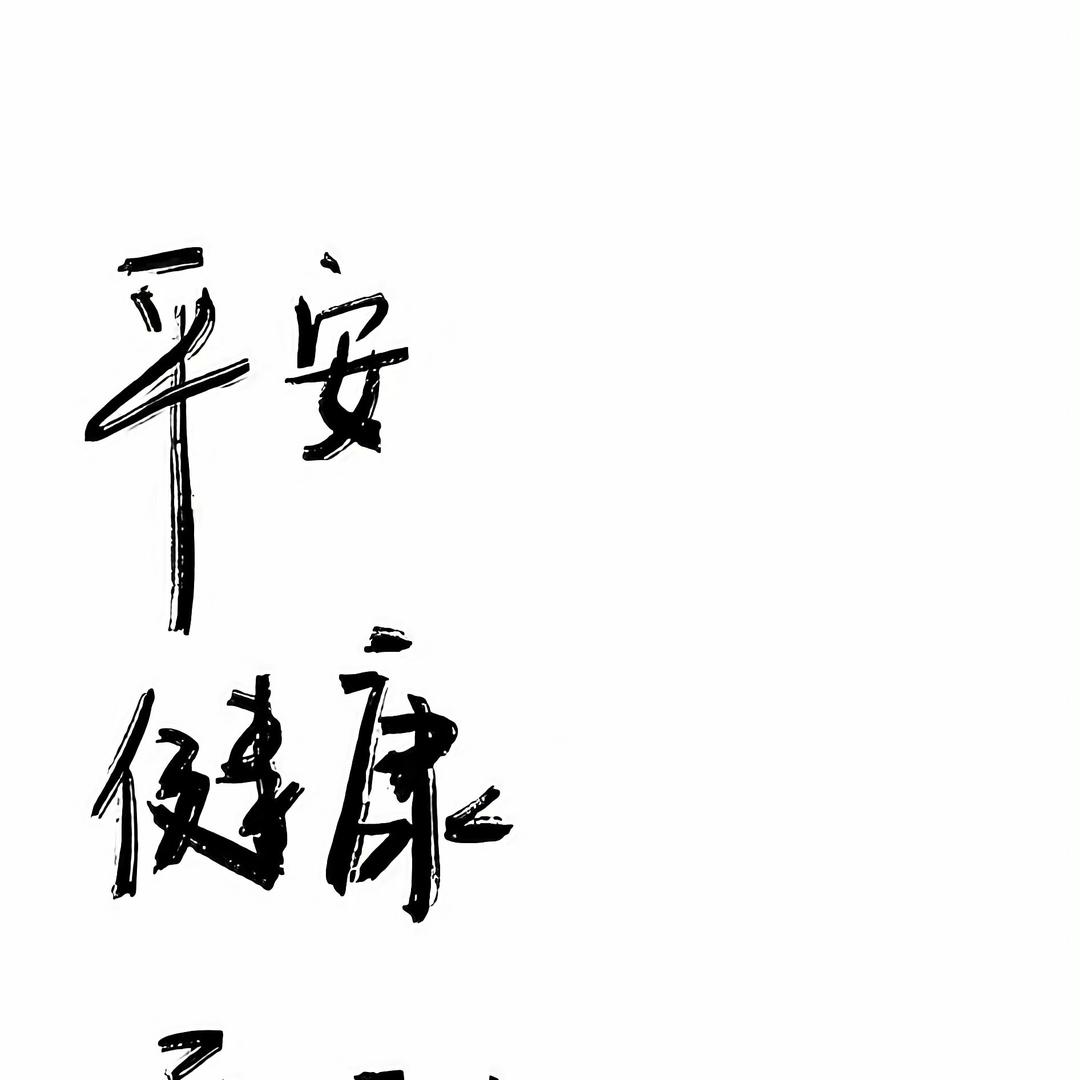 平安
健康